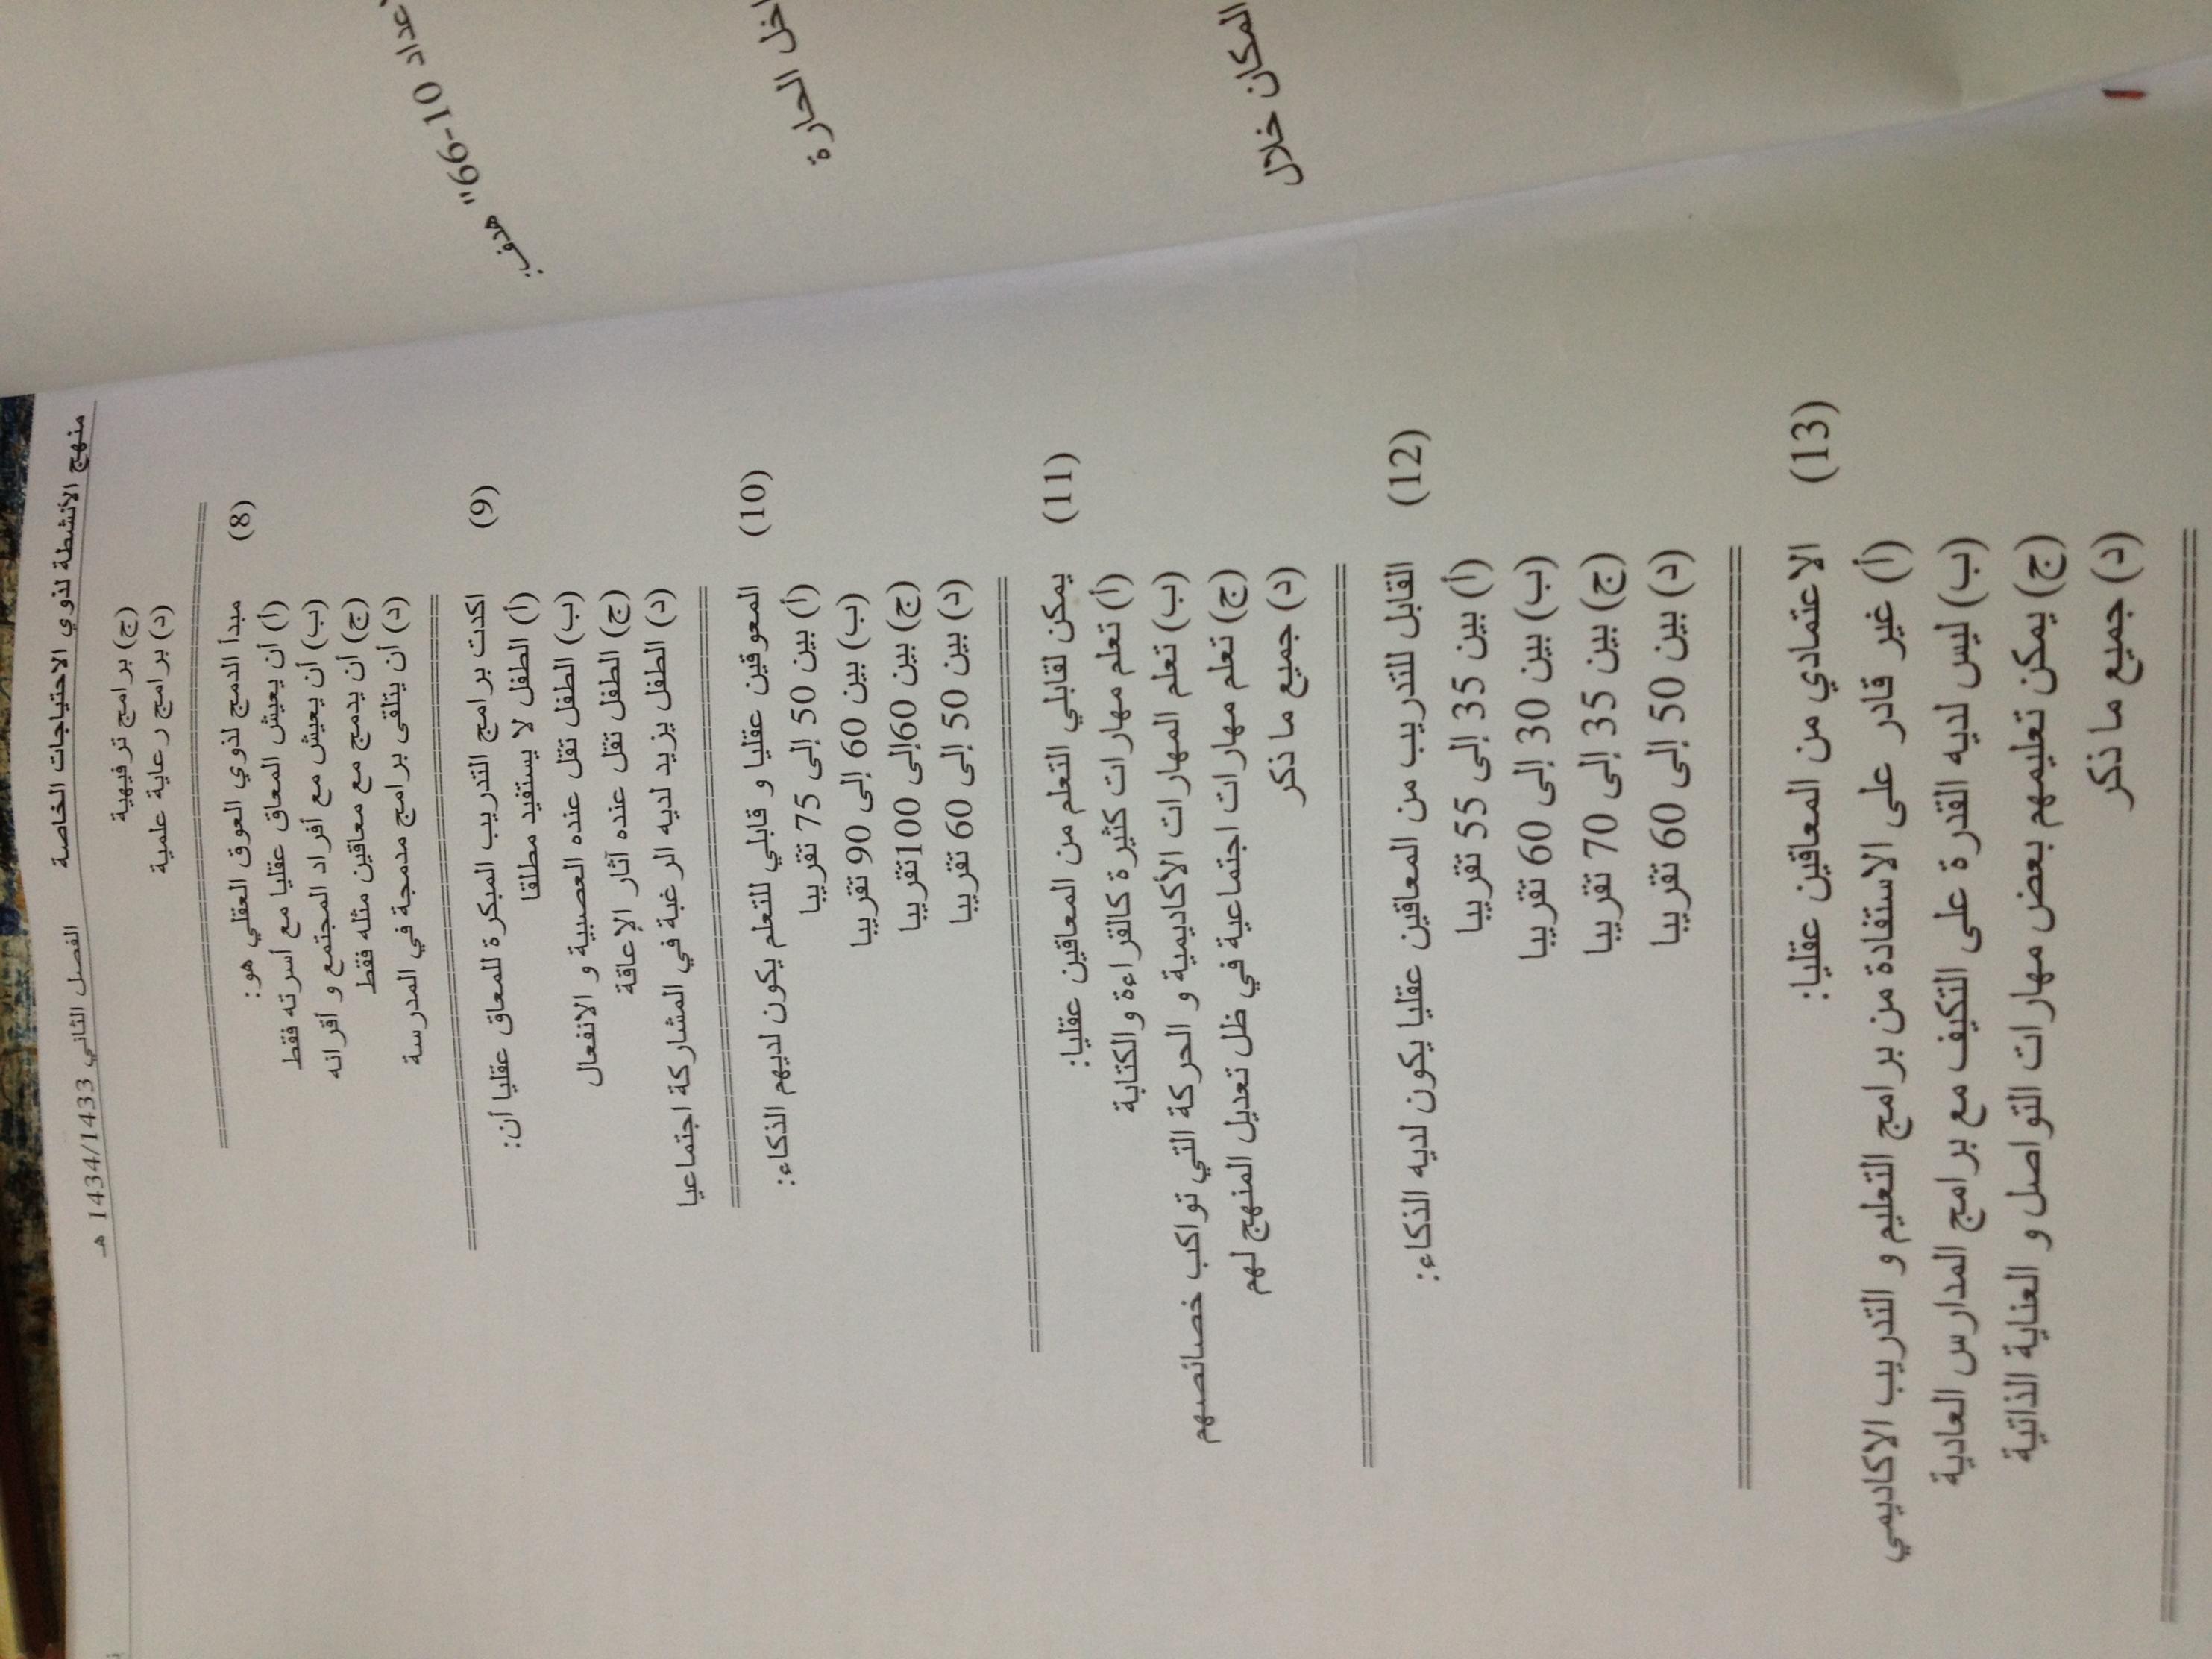 منهج الأنشطة لذوي الاحتياجات الخاصة الفصل الثاني 1434/1433 هـ
(ج) برامج ترفيهية
(د) برامج رعاية علمية
(8) مبدأ الدمج لذوي العوق العقلي هو:
(أ) أن يعيش المعاق عقليا مع أسرته فقط
(ب) أن يعيش مع أفراد المجتمع و أقرانه
(ج) أن يدمج مع معاقين مثله فقط
(د) أن يتلقى برامج مدمجة في المدرسة
(9) اكدت برامج التدريب المبكرة للمعاق عقليا أن:
(أ) الطفل لا يستفيد مطلقا
(ب) الطفل تقل عنده العصبية و الانفعال
(ج) الطفل تقل عنده آثار الإعاقة
(د) الطفل يزيد لديه الرغبة في المشاركة اجتماعيا
(10) المعوقين عقليا و قابلي للتعلم يكون لديهم الذكاء:
(أ) بين 50 إلى 75 تقريبا
(ب) بين 60 إلى 90 تقريبا
(ج) بين 60إلى 100تقريبا
(د) بين 50 إلى 60 تقريبا
(11) يمكن لقابلي التعلم من المعاقين عقليا:
(أ) تعلم مهارات كثيرة كالقراءة والكتابة
(ب) تعلم المهارات الأكاديمية و الحركة التي تواكب خصائصهم
(ج) تعلم مهارات اجتماعية في ظل تعديل المنهج لهم
(د) جميع ما ذكر
(12) القابل للتدريب من المعاقين عقليا يكون لديه الذكاء:
(أ) بين 35 إلى 55 تقريبا
(ب) بين 30 إلى 60 تقريبا
(ج) بين 35 إلى 70 تقريبا
(د) بين 50 إلى 60 تقريبا
(13) الاعتمادي من المعاقين عقليا:
(أ) غير قادر على الاستفادة من برامج التعليم و التدريب الاكاديمي
(ب) ليس لديه القدرة على التكيف مع برامج المدارس العادية
(ج) يمكن تعليمهم بعض مهارات التواصل و العناية الذاتية
(د) جميع ما ذكر
10-66"
الحارة
المكان خلال